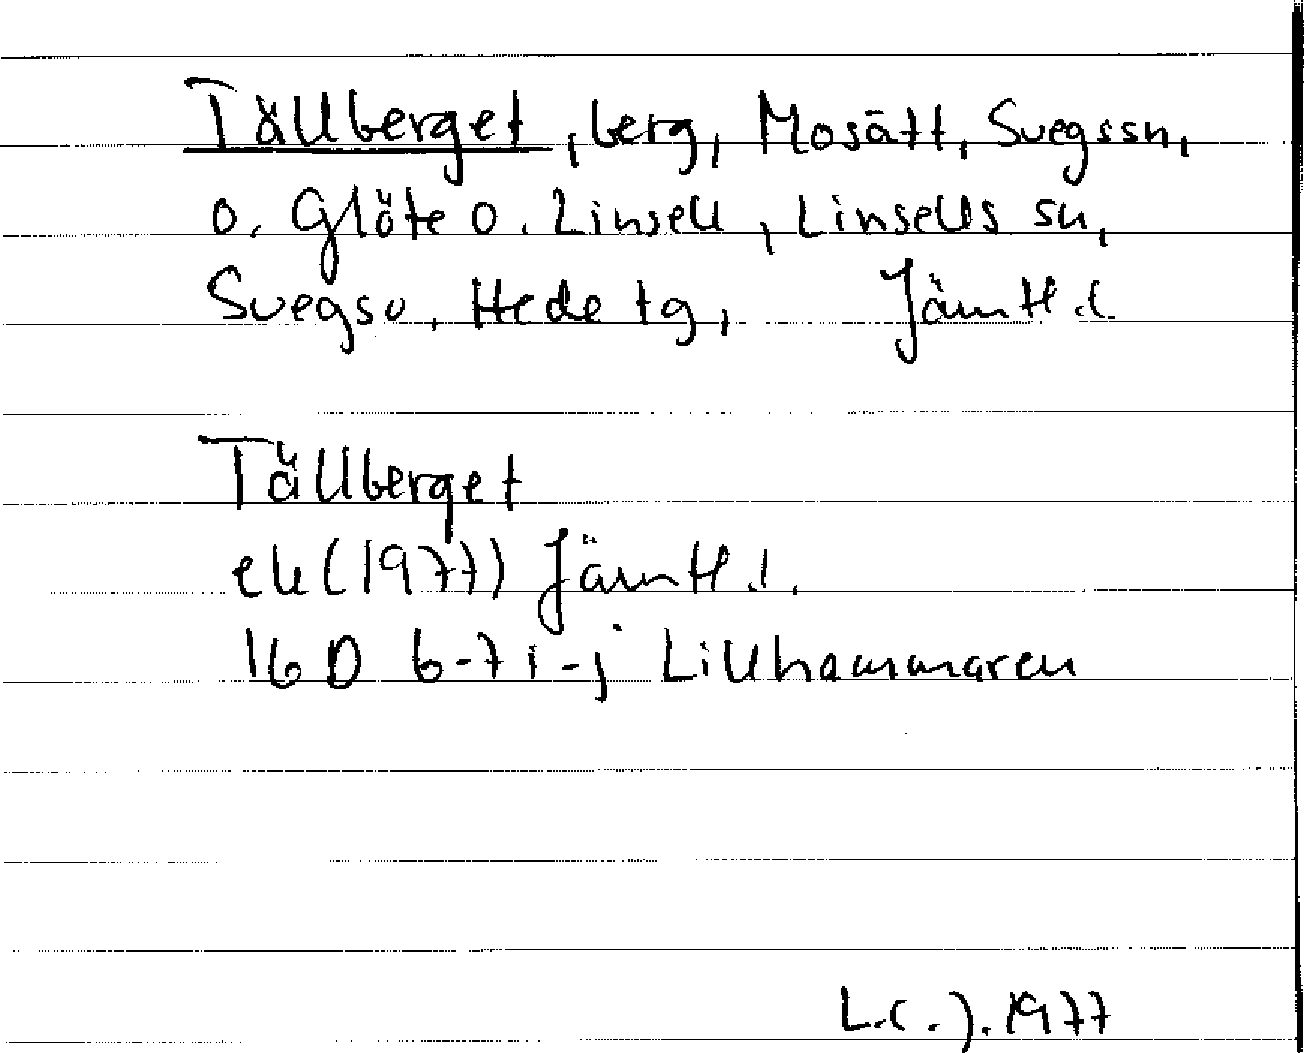 Tällberget, berg, Mosätt, Svegs sn,
o. Glöte o. Linsell, Linsells sn,
Svegs o, Hede tg, Jämtl.l.
Tällberget
ek (1977) Jämtl.l.
16 D 6-7 i-j Lillhammaren
L.C.J. 1977